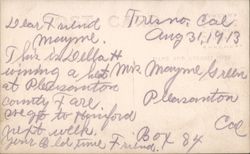 Dear Friend
Mayme.
This is Della H
wining a heat
at Pleasanton
county Fare.
we go to Hanford
next week.
Your Old time Friend.
Fresno, Cal
Aug 31, 1913
Mrs Mayme Green
Pleasanton
Cal
Box 84